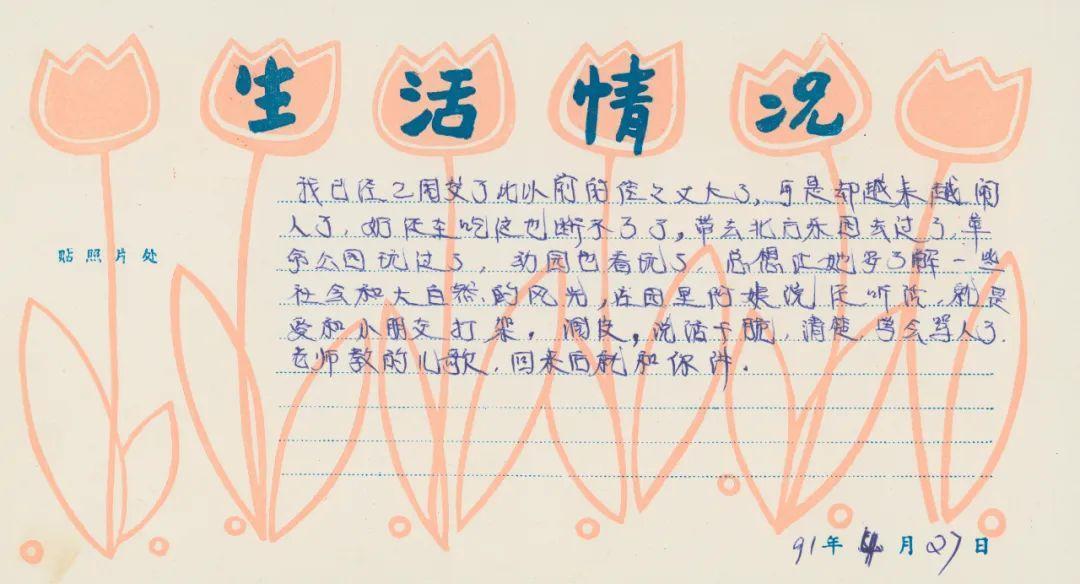 生活情况
我已经2周岁了比以前的体又大了，可是却越来越闹
人了，奶还在吃但也断不了了，带去北方乐园去过了，
公园玩过了，动园也看玩了，总想让她多了解一些
社会和大自然的风光，在园里阿姨说还听话，就是
爱和小朋友打架，调皮，说话干脆，清楚，学会骂人了，
老师教的儿歌，回来后就和你讲．
贴照片处
91年4月27日